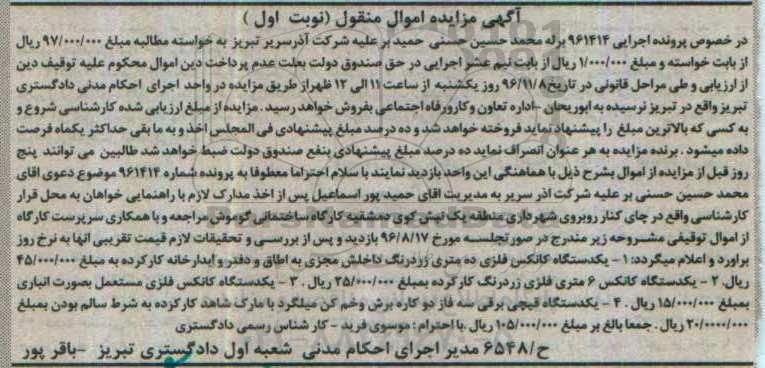 آگهی مزایده اموال منقول (نوبت اول)
در خصوص پرونده اجرایی ۹۶۱۴۱۴ برله محمد حسین حسنی حمید بر علیه شرکت آذرسریر تبریز به خواسته مطالبه مبلغ ۹۷/۰۰۰/۰۰۰ ریال
از بابت خواسته و مبلغ ۱/۰۰۰/۰۰۰ ریال از بابت نیم عشر اجرایی در حق صندوق دولت بعلت عدم پرداخت دین اموال محکوم علیه توقیف دین
از ارزیابی و طی مراحل قانونی در تاریخ ۹۶/۱۱/۸ روز یکشنبه از ساعت ۱۱ الی ۱۲ ظهر از طریق مزایده در واحد اجرای احکام مدنی دادگستری
تبریز واقع در تبریز نرسیده به ابوریحان -اداره تعاون و کار ورفاه اجتماعی بفروش خواهد رسید . مزایده از مبلغ ارزیابی شده کارشناسی شروع و
به کسی که بالاترین مبلغ را پیشنهاد نماید فروخته خواهد شد و ده درصد مبلغ پیشنهادی فی المجلس اخذ و به ما بقی حداکثر یکماه فرصت
داده میشود . برنده مزایده به هر عنوان انصراف نماید ده درصد مبلغ پیشنهادی بنفع صندوق دولت ضبط خواهد شد طالبین می توانند پنج
روز قبل از مزایده از اموال بشرح ذیل با هماهنگی این واحد بازدید نمایند با سلام احتراما معطوفا به پرونده شماره ۹۶۱۴۱۴ موضوع دعوی اقای
محمد حسین حسنی بر علیه شرکت آذر سریر به مدیریت اقای حمید پور اسماعیل پس از اخذ مدارک لازم با راهنمایی خواهان به محل قرار
کارشناسی واقع در چای کنار روبروی شهرداری منطقه یک نبش کوی دمشقیه کارگاه ساختمانی گوموش مراجعه و با همکاری سرپرست کارگاه
از اموال توقیفی مشروحه زیر مندرج در صورتجلسه مورخ ۹۶/۸/۱۷ بازدید و پس از بررسی و تحقیقات لازم قیمت تقریبی آنها به نرخ روز
براورد و اعلام میگردد: ۱ - یکدستگاه کانکس فلزی ده متری زردرنگ داخلش مجزی به اطاق و دفتر و آبدارخانه کارکرده به مبلغ ۴۵/۰۰۰/۰۰۰
ریال. ۲ - یکدستگاه کانکس ۶ متری فلزی زردرنگ کارکرده بمبلغ ۲۵/۰۰۰/۰۰۰ ریال . ۳ - یکدستگاه کانکس فلزی مستعمل بصورت انباری
بمبلغ ۱۵/۰۰۰/۰۰۰ ریال . ۴ - یکدستگاه قیچی برقی سه فاز دو کاره برش وخم کن میلگرد با مارک شاهد کارکرده به شرط سالم بودن بمبلغ
۲۰/۰۰۰/۰۰۰ ریال . جمعا بالغ بر مبلغ ۱۰۵/۰۰۰/۰۰۰ ریال .با احترام : موسوی فرید - کارشناس رسمی دادگستری
ح/۶۵۴۸ مدیر اجرای احکام مدنی شعبه اول دادگستری تبریز -باقر پور